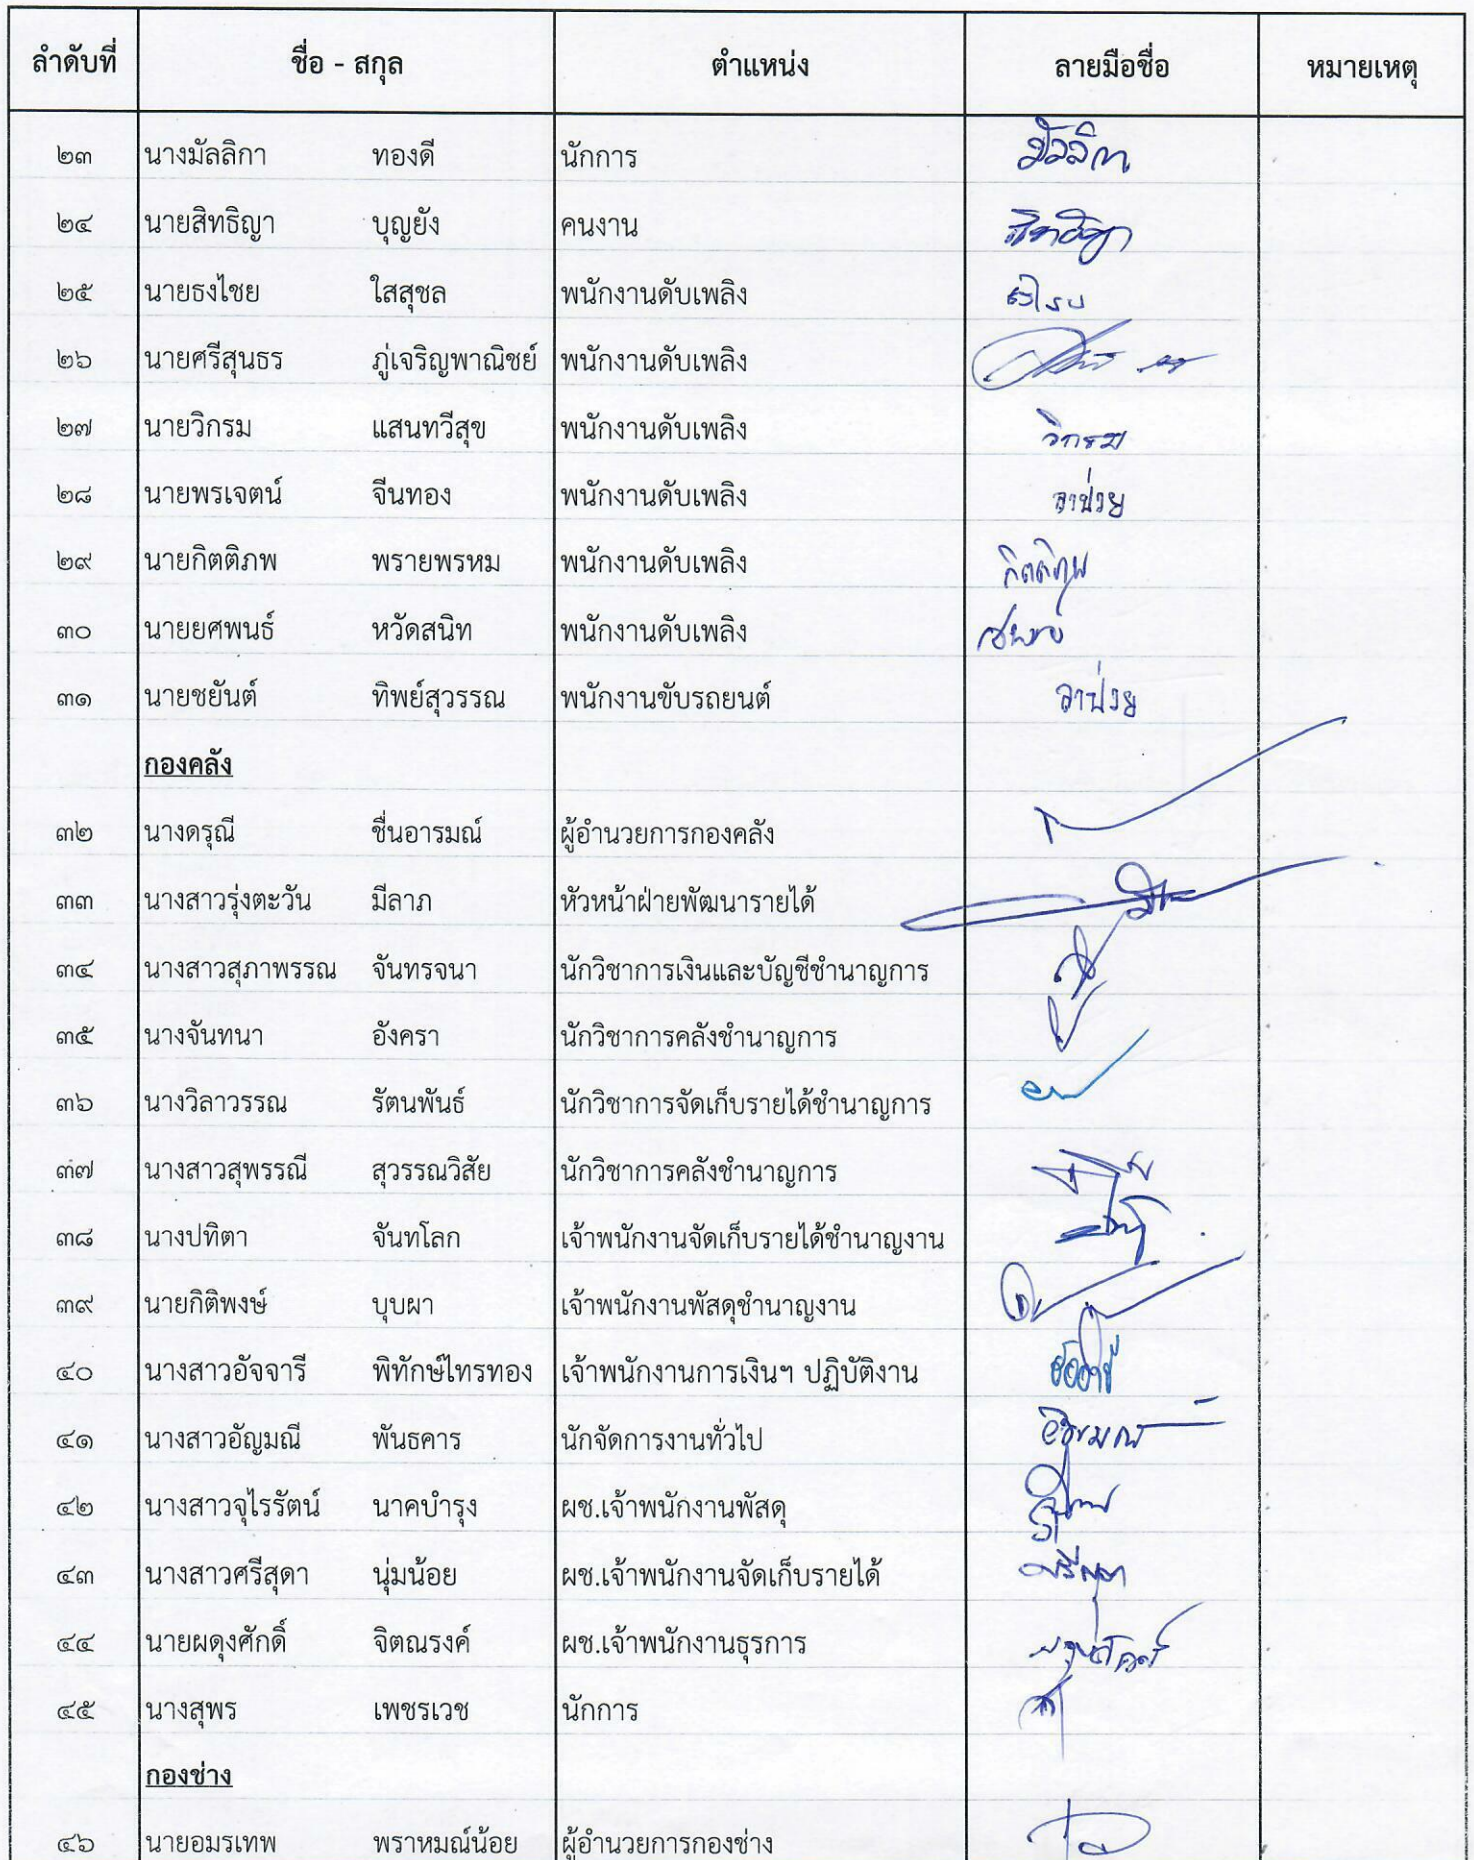 ลำดับที่ ชื่อ - สกุล ตำแหน่ง ลายมือชื่อ หมายเหตุ
๒๓ นางมัลลิกา ทองดี นักการ มัลลิกา
๒๔ นายสิทธิญา บุญยัง คนงาน สิทธิญา
๒๕ นายธงไชย ใสสุชล พนักงานดับเพลิง
๒๖ นายศรีสุนธร ภู่เจริญพาณิชย์ พนักงานดับเพลิง
๒๗ นายวิกรม แสนทวีสุข พนักงานดับเพลิง วิกรม
๒๘ นายพรเจตน์ จีนทอง พนักงานดับเพลิง ลาป่วย
๒๙ นายกิตติภพ พรายพรหม พนักงานดับเพลิง กิตติภพ
๓๐ นายยศพนธ์ หวัดสนิท พนักงานดับเพลิง
๓๑ นายชยันต์ ทิพย์สุวรรณ พนักงานขับรถยนต์ ลาป่วย
กองคลัง
๓๒ นางดรุณี ชื่นอารมณ์ ผู้อำนวยการกองคลัง
๓๓ นางสาวรุ่งตะวัน มีลาภ หัวหน้าฝ่ายพัฒนารายได้
๓๔ นางสาวสุภาพรรณ จันทรจนา นักวิชาการเงินและบัญชีชำนาญการ
๓๕ นางจันทนา อังครา นักวิชาการคลังชำนาญการ
๓๖ นางวิลาวรรณ รัตนพันธ์ นักวิชาการจัดเก็บรายได้ชำนาญการ
๓๗ นางสาวสุพรรณี สุวรรณวิสัย นักวิชาการคลังชำนาญการ
๓๘ นางปทิตา จันทโลก เจ้าพนักงานจัดเก็บรายได้ชำนาญงาน
๓๙ นายกิติพงษ์ บุบผา เจ้าพนักงานพัสดุชำนาญงาน
๔๐ นางสาวอัจจารี พิทักษ์ไทรทอง เจ้าพนักงานการเงินฯ ปฏิบัติงาน อัจจารี
๔๑ นางสาวอัญมณี พันธคาร นักจัดการงานทั่วไป อัญมณี
๔๒ นางสาวจุไรรัตน์ นาคบำรุง ผช.เจ้าพนักงานพัสดุ
๔๓ นางสาวศรีสุดา นุ่มน้อย ผช.เจ้าพนักงานจัดเก็บรายได้ ศรีสุดา
๔๔ นายผดุงศักดิ์ จิตณรงค์ ผช.เจ้าพนักงานธุรการ
๔๕ นางสุพร เพชรเวช นักการ
กองช่าง
๔๖ นายอมรเทพ พราหมณ์น้อย ผู้อำนวยการกองช่าง